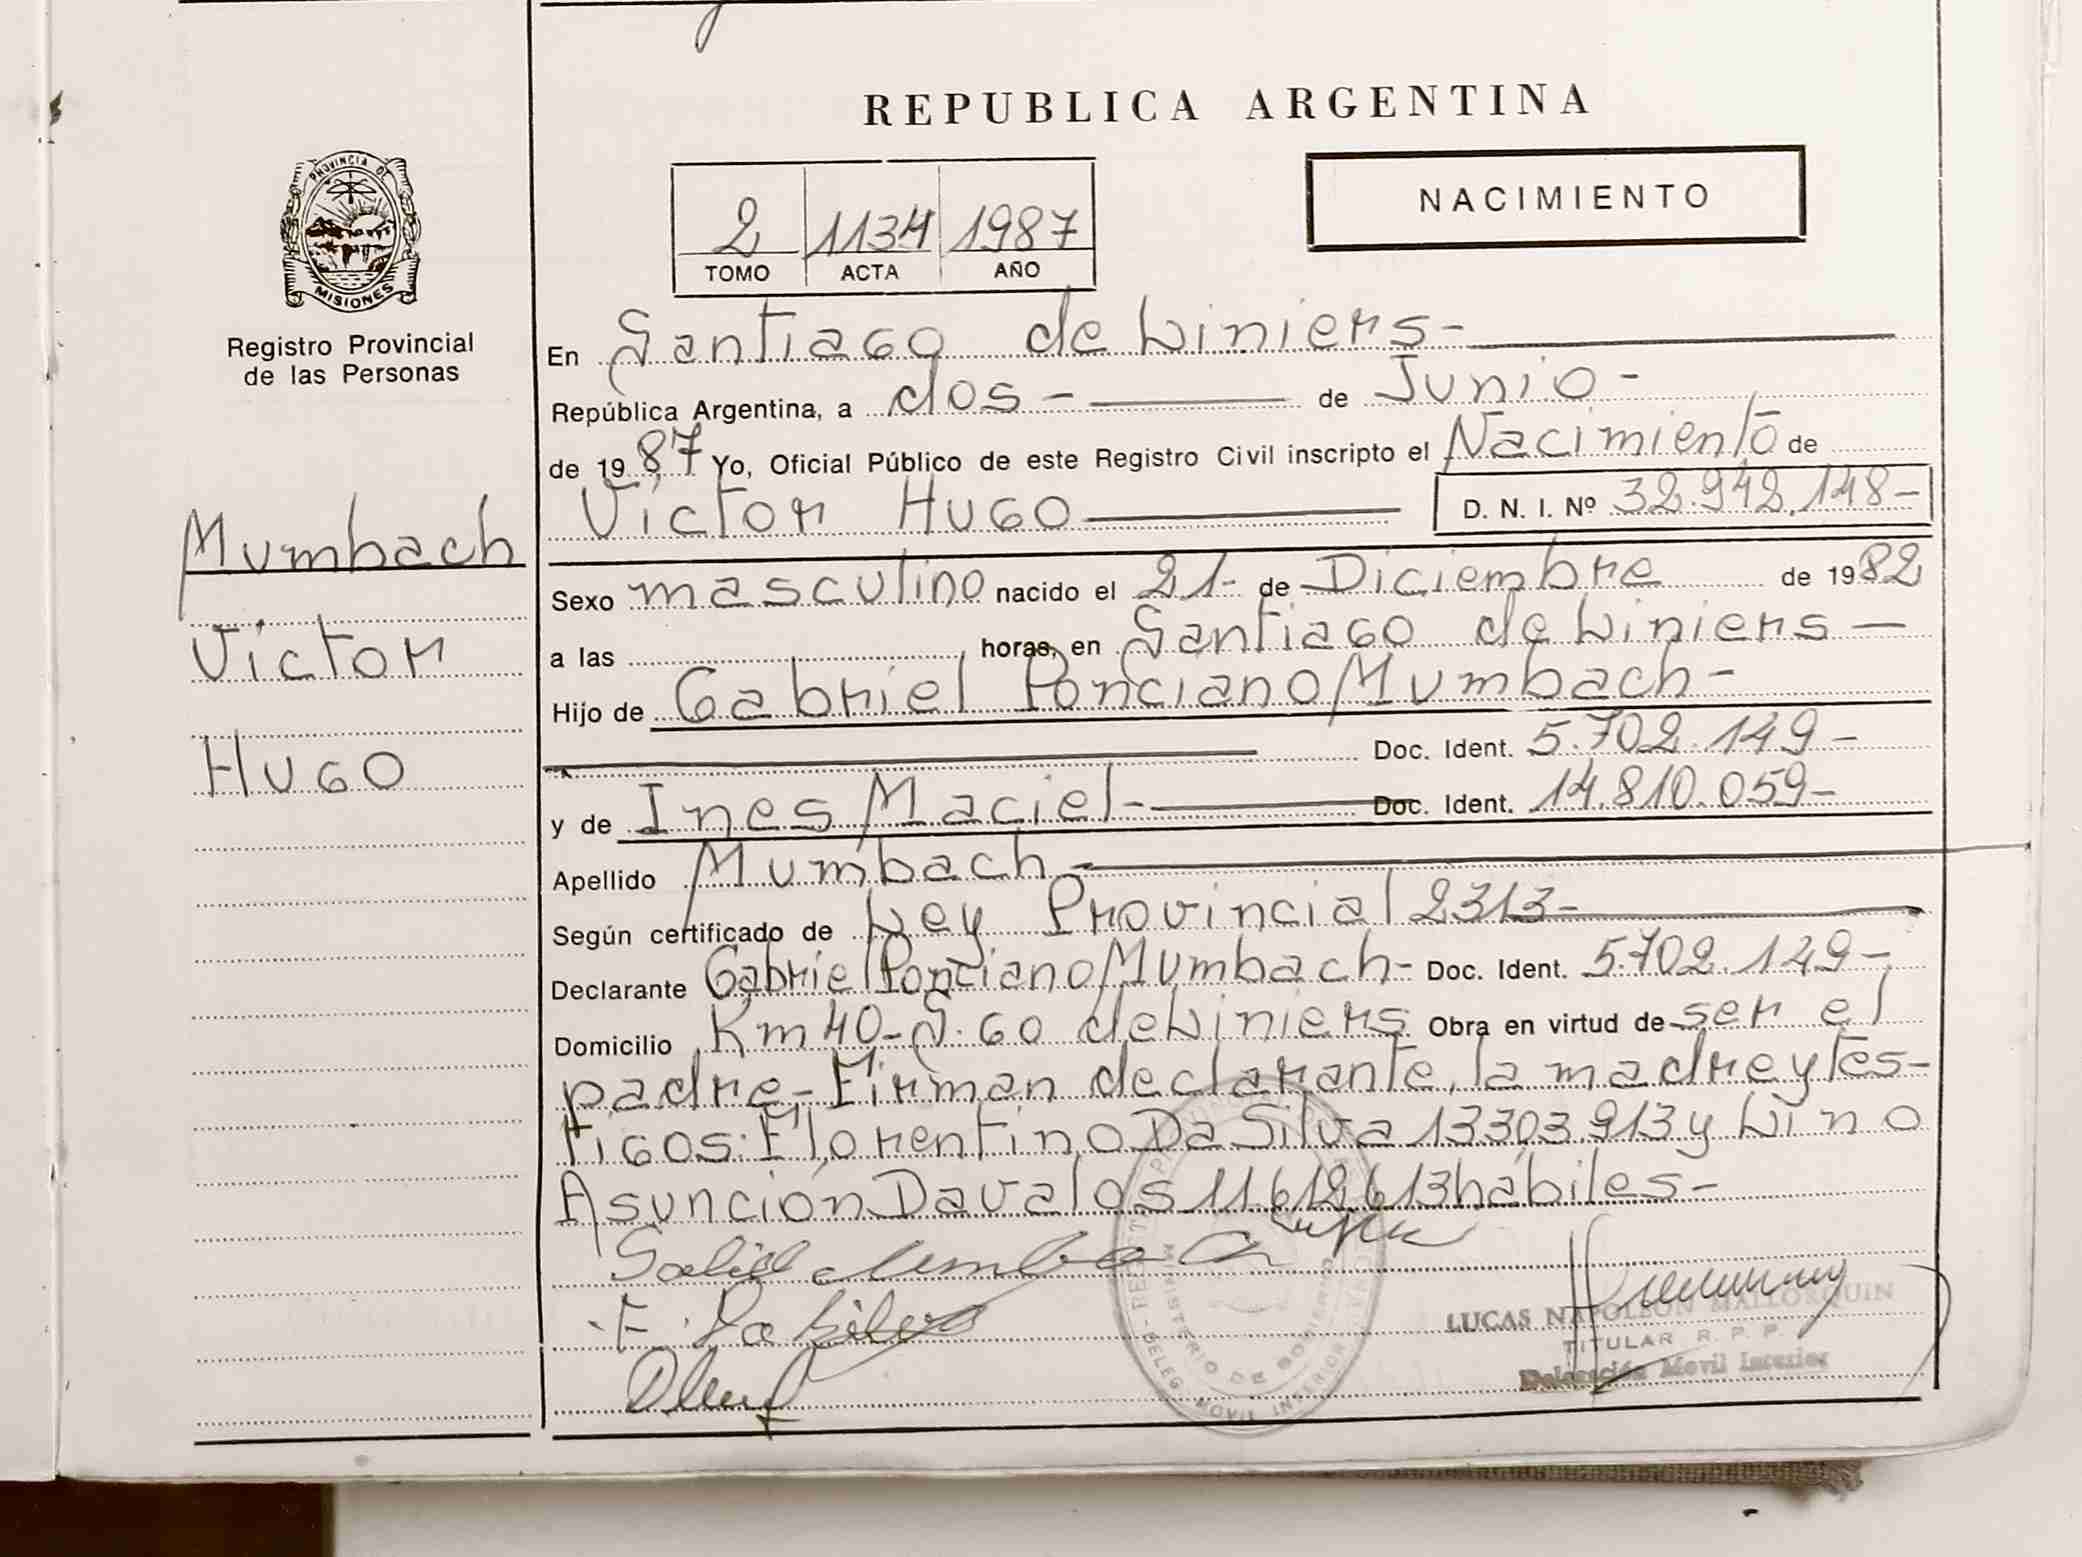 REPUBLICA ARGENTINA
NACIMIENTO
2 1134 1987
TOMO ACTA AÑO
PROVINCIA DE
MISIONES
Registro Provincial
de las Personas
Mumbach
Victor
Hugo
En Santiago de Liniers-
República Argentina, a dos - de Junio -
de 1987 Yo, Oficial Público de este Registro Civil inscripto el Nacimiento de
Victor Hugo D. N. I. Nº 32.942.148-
Sexo masculino nacido el 21- de Diciembre de 1982
a las horas, en Santiago de Liniers -
Hijo de Gabriel Ponciano Mumbach -
Doc. Ident. 5.702.149 -
y de Ines Maciel - Doc. Ident. 14.810.059-
Apellido Mumbach -
Según certificado de Ley Provincial 2313-
Declarante Gabriel Ponciano Mumbach - Doc. Ident. 5.702.149 -
Domicilio Km 40-S.go de Liniers. Obra en virtud de ser el
padre - Firman declarante, la madre y tes-
tigos: Florentino Da Silva 13303.913 y Lino
Asunción Davalos 11.612.613 hábiles -
E. Da Silva
LUCAS NAPOLEON MALLORQUIN
TITULAR R. P. P.
Delegación Movil Interior
MINISTERIO DE GOBIERNO
DELEG. MOVIL INTERIOR